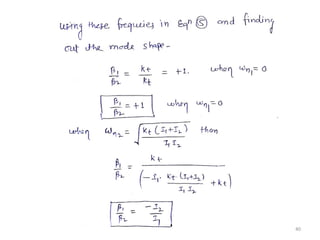 using these frequencies in Eqn ⑤ and finding
out the mode shape-
β1/β2 = kt/kt = +1. when ωn1 = 0
β1/β2 = +1 when ωn1 = 0
when ωn2 = √(kt (I1+I2) / I1 I2) then
β1/β2 = kt / (-I1 · kt (I1+I2) / I1 I2 + kt)
β1/β2 = -I2/I1